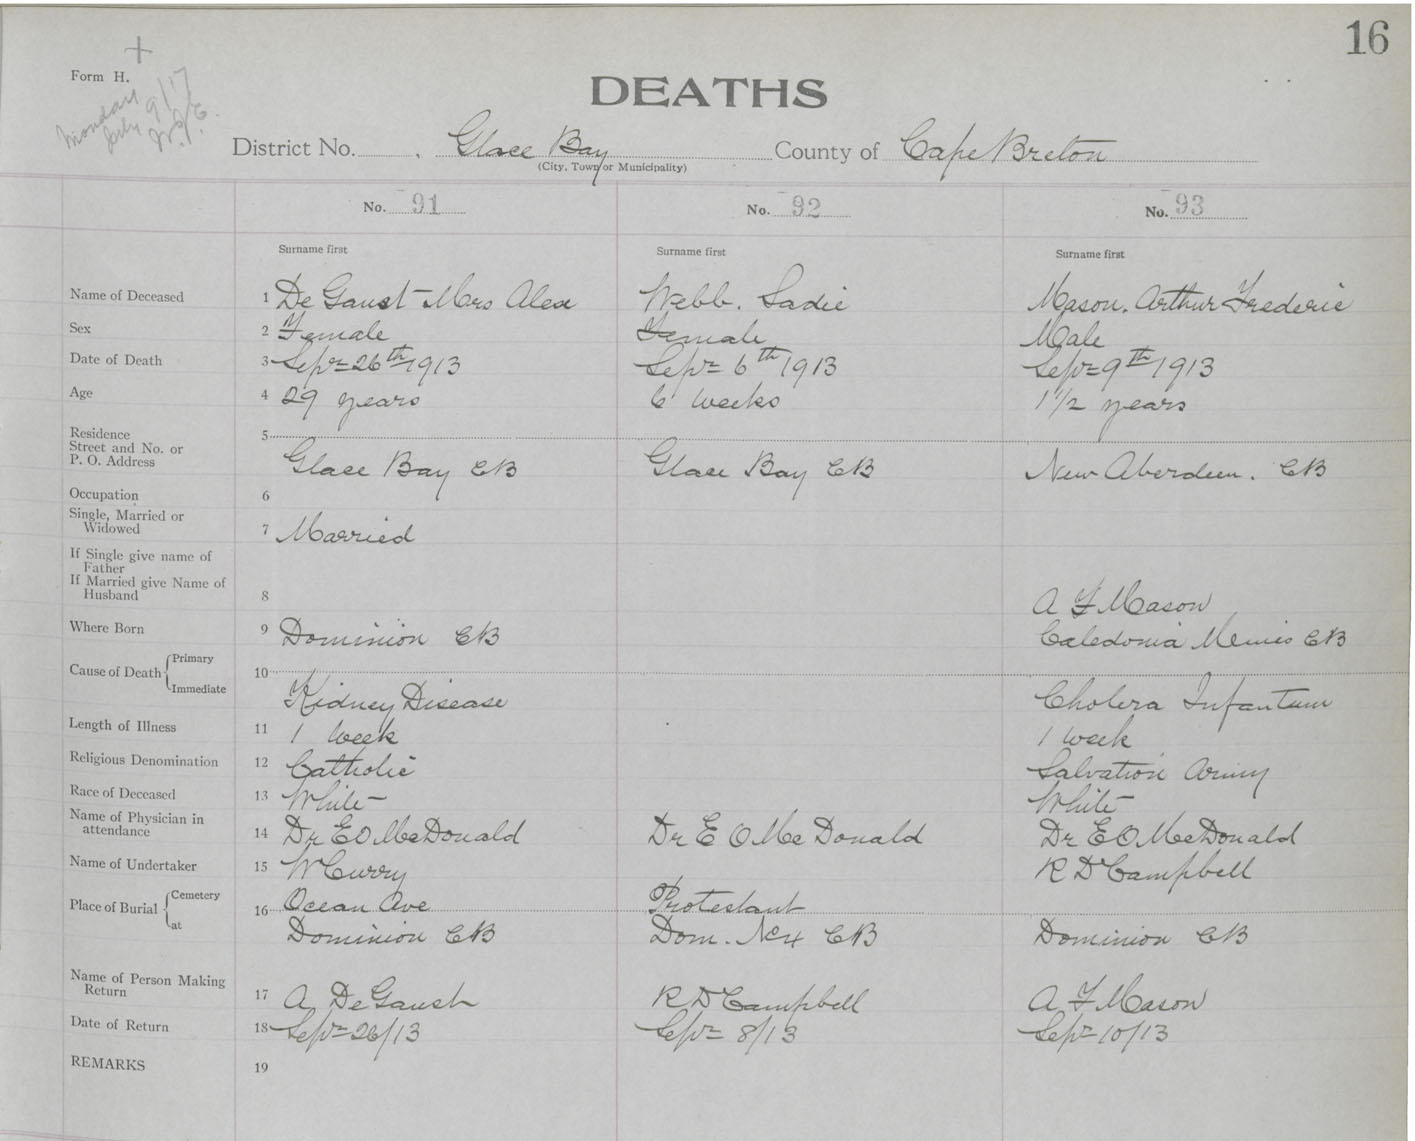 16
Form H.
Monday
July 9/17
DEATHS
District No. Glace Bay County of Cape Breton
(City, Town or Municipality)
No. 91 No. 92 No. 93
Surname first Surname first Surname first
Name of Deceased 1 De Gaust Mrs Alex Webb. Sadie Mason. Arthur Frederic
Sex 2 Female Female Male
Date of Death 3 Sept 26th 1913 Sept 6th 1913 Sept 9th 1913
Age 4 29 years 6 weeks 1 1/2 years
Residence 5
Street and No. or
P. O. Address Glace Bay CB Glace Bay CB New Aberdeen. CB
Occupation 6
Single, Married or
Widowed 7 Married
If Single give name of
Father
If Married give Name of
Husband 8 A F Mason
Where Born 9 Dominion CB Caledonia Mines CB
Cause of Death Primary 10
Immediate Kidney Disease Cholera Infantum
Length of Illness 11 1 week 1 week
Religious Denomination 12 Catholic Salvation Army
Race of Deceased 13 White White
Name of Physician in
attendance 14 Dr E O McDonald Dr E O McDonald Dr E O McDonald
Name of Undertaker 15 W Curry R D Campbell
Place of Burial Cemetery 16 Ocean Ave Protestant
at Dominion CB Dom. No 4 CB Dominion CB
Name of Person Making
Return 17 A. De Gaust R D Campbell A F Mason
Date of Return 18 Sept 26/13 Sept 8/13 Sept 10/13
REMARKS 19